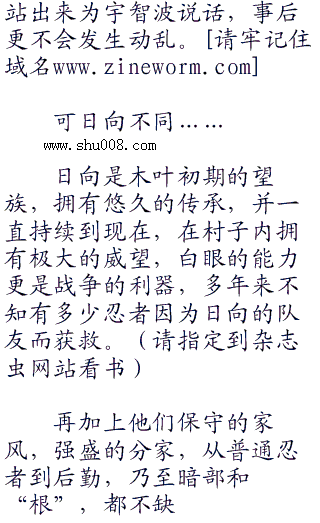 站出来为宇智波说话，事后
更不会发生动乱。[请牢记住
域名www.zineworm.com]
可日向不同……
www.shu008.com
日向是木叶初期的望
族，拥有悠久的传承，并一
直持续到现在，在村子内拥
有极大的威望，白眼的能力
更是战争的利器，多年来不
知有多少忍者因为日向的队
友而获救。（请指定到杂志
虫网站看书）
再加上他们保守的家
风，强盛的分家，从普通忍
者到后勤，乃至暗部和
“根”，都不缺